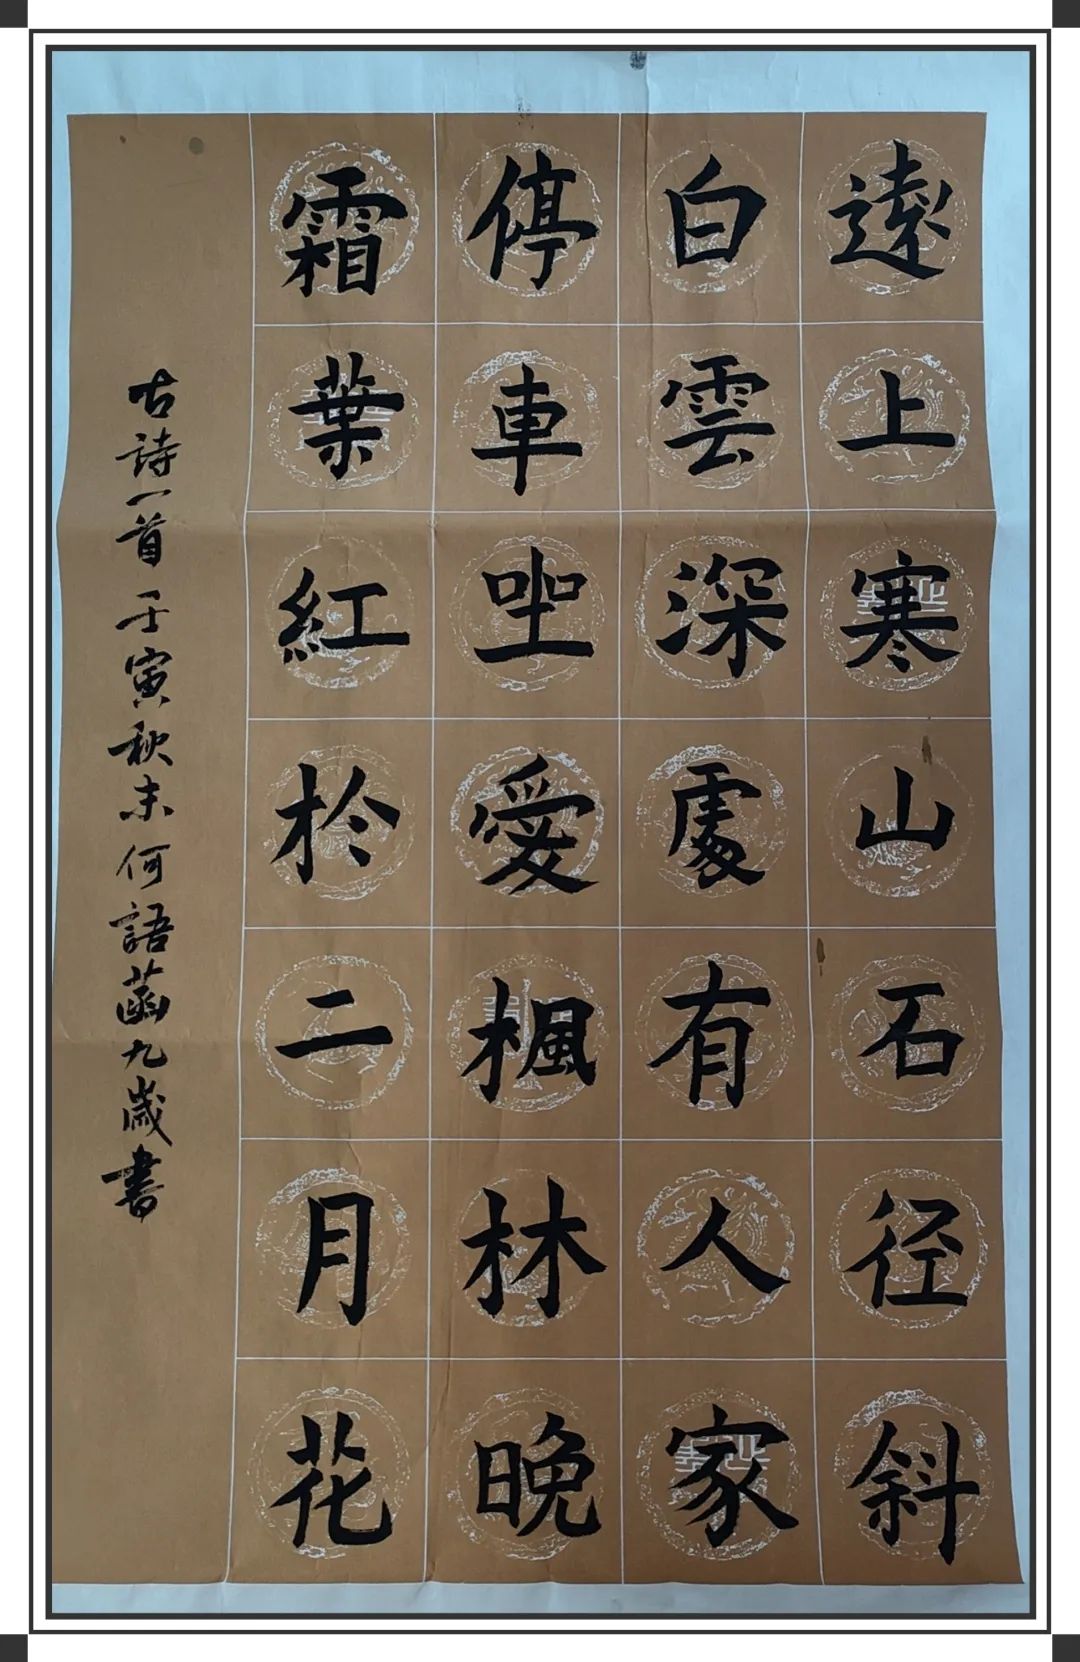 遠上寒山石径斜
白雲深處有人家
停車坐愛楓林晚
霜葉紅於二月花
古詩一首壬寅秋末何語菡九歲書